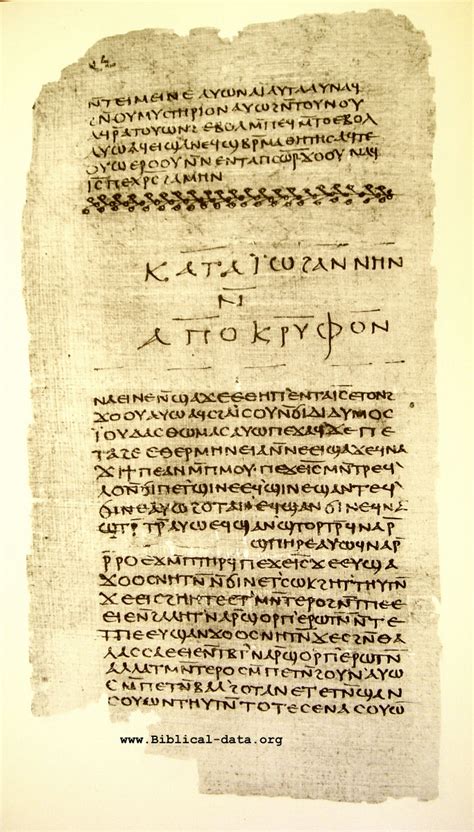 ⲛ̄ⲧⲉⲓⲙⲉⲓⲛⲉⲁⲩⲱⲛⲁⲓⲁⲩⲧⲁⲁⲩⲛⲁϥ
ϩⲛ̄ⲛⲟⲩⲙⲩⲥⲧⲏⲣⲓⲟⲛⲁⲩⲱϩⲛ̄ⲧⲟⲩⲛⲟⲩ
ⲁϥⲣⲁⲧⲟⲩⲱⲛϩⲉⲃⲟⲗⲙ̄ⲡⲉϥⲙⲧⲟⲉⲃⲟⲗ
ⲁⲩⲱⲁϥⲉⲓϣⲁⲛⲉϥϣⲃⲣ̄ⲙⲁⲑⲏⲧⲏⲥⲁϥⲧⲉ
ⲟⲩⲱⲉⲣⲟⲟⲩⲛ̄ⲛⲉⲛⲧⲁⲡⲥⲱ̄ⲣ̄ϫⲟⲟⲩⲛⲁϥ
ⲓ̄ⲥ̄ⲡⲉⲭⲣ̄ⲥ̄ϩⲁⲙⲏⲛ
ⲕⲁⲧⲁⲓ̈ⲱϩⲁⲛⲛⲏⲛ
ⲛ̄
ⲁⲡⲟⲕⲣⲩⲫⲟⲛ
ⲛⲁⲉⲓⲛⲉⲛ̄ϣⲁϫⲉⲉⲑⲏⲡ̄ⲉⲛⲧⲁⲓ̄ⲥ̄ⲉⲧⲟⲛϩ
ϫⲟⲟⲩⲁⲩⲱⲁϥⲥϩⲁⲓⲥⲟⲩⲛ̄ϭⲓⲇⲓⲇⲩⲙⲟⲥ
ⲓ̈ⲟⲩⲇⲁⲥⲑⲱⲙⲁⲥⲁⲩⲱⲡⲉϫⲁϥϫⲉⲡⲉ
ⲧⲁϩⲉⲉⲑⲉⲣⲙⲏⲛⲉⲓⲁⲛ̄ⲛⲉⲉⲓϣⲁϫⲉϥⲛⲁ
ϫⲓϯⲡⲉⲁⲛⲙ̄ⲡⲙⲟⲩⲡⲉϫⲉⲓ̄ⲥ̄ⲙⲛ̄ⲧⲣⲉϥ
ⲗⲟⲛ̄ϭⲓⲡⲉⲧϣⲓⲛⲉⲉϥϣⲓⲛⲉϣⲁⲛⲧⲉϥ
ϭⲓⲛⲉⲁⲩⲱϩⲟⲧⲁⲛⲉϥϣⲁⲛϭⲓⲛⲉϥⲛⲁ
ϣⲧⲣ̄ⲧⲣ̄ⲁⲩⲱⲉϥϣⲁⲛϣⲧⲟⲣⲧⲣ̄ϥⲛⲁⲣ̄
ϣⲡⲏⲣⲉⲁⲩⲱϥⲛⲁⲣ̄
ⲣ̄ⲣⲟⲉϫⲙ̄ⲡⲧⲏⲣϥⲡⲉϫⲉⲓ̄ⲥ̄ϫⲉⲉⲩϣⲁ
ϫⲟⲟⲥⲛⲏⲧⲛ̄ⲛ̄ϭⲓⲛⲉⲧⲥⲱⲕϩⲏⲧⲧⲏⲩⲧⲛ̄
ϫⲉⲉⲓⲥϩⲏⲏⲧⲉⲉⲧⲙⲛ̄ⲧⲉⲣⲟϩⲛ̄ⲧⲡⲉⲉ
ⲉⲓⲉⲛ̄ϩⲁⲗⲏⲧⲛⲁⲣ̄ϣⲟⲣⲡⲉⲣⲱⲧⲛ̄ⲛ̄ⲧⲉ
ⲧⲡⲉⲉⲩϣⲁⲛϫⲟⲟⲥⲛⲏⲧⲛ̄ϫⲉⲥϩⲛ̄ⲑⲁ
ⲗⲁⲥⲥⲁⲉⲉⲓⲉⲛ̄ⲧⲃⲧⲛⲁⲣ̄ϣⲟⲣⲡⲉⲣⲱⲧⲛ̄
ⲁⲗⲗⲁⲧⲙⲛ̄ⲧⲉⲣⲟⲥⲙ̄ⲡⲉⲧⲛ̄ϩⲟⲩⲛⲁⲩⲱ
ⲥⲙ̄ⲡⲉⲧⲛ̄ⲃⲁⲗϩⲟⲧⲁⲛⲉⲧⲉⲧⲛ̄ϣⲁⲛ
ⲥⲟⲩⲱⲛⲧⲏⲩⲧⲛ̄ⲧⲟⲧⲉⲥⲉⲛⲁⲥⲟⲩⲱ
www.Biblical-data.org